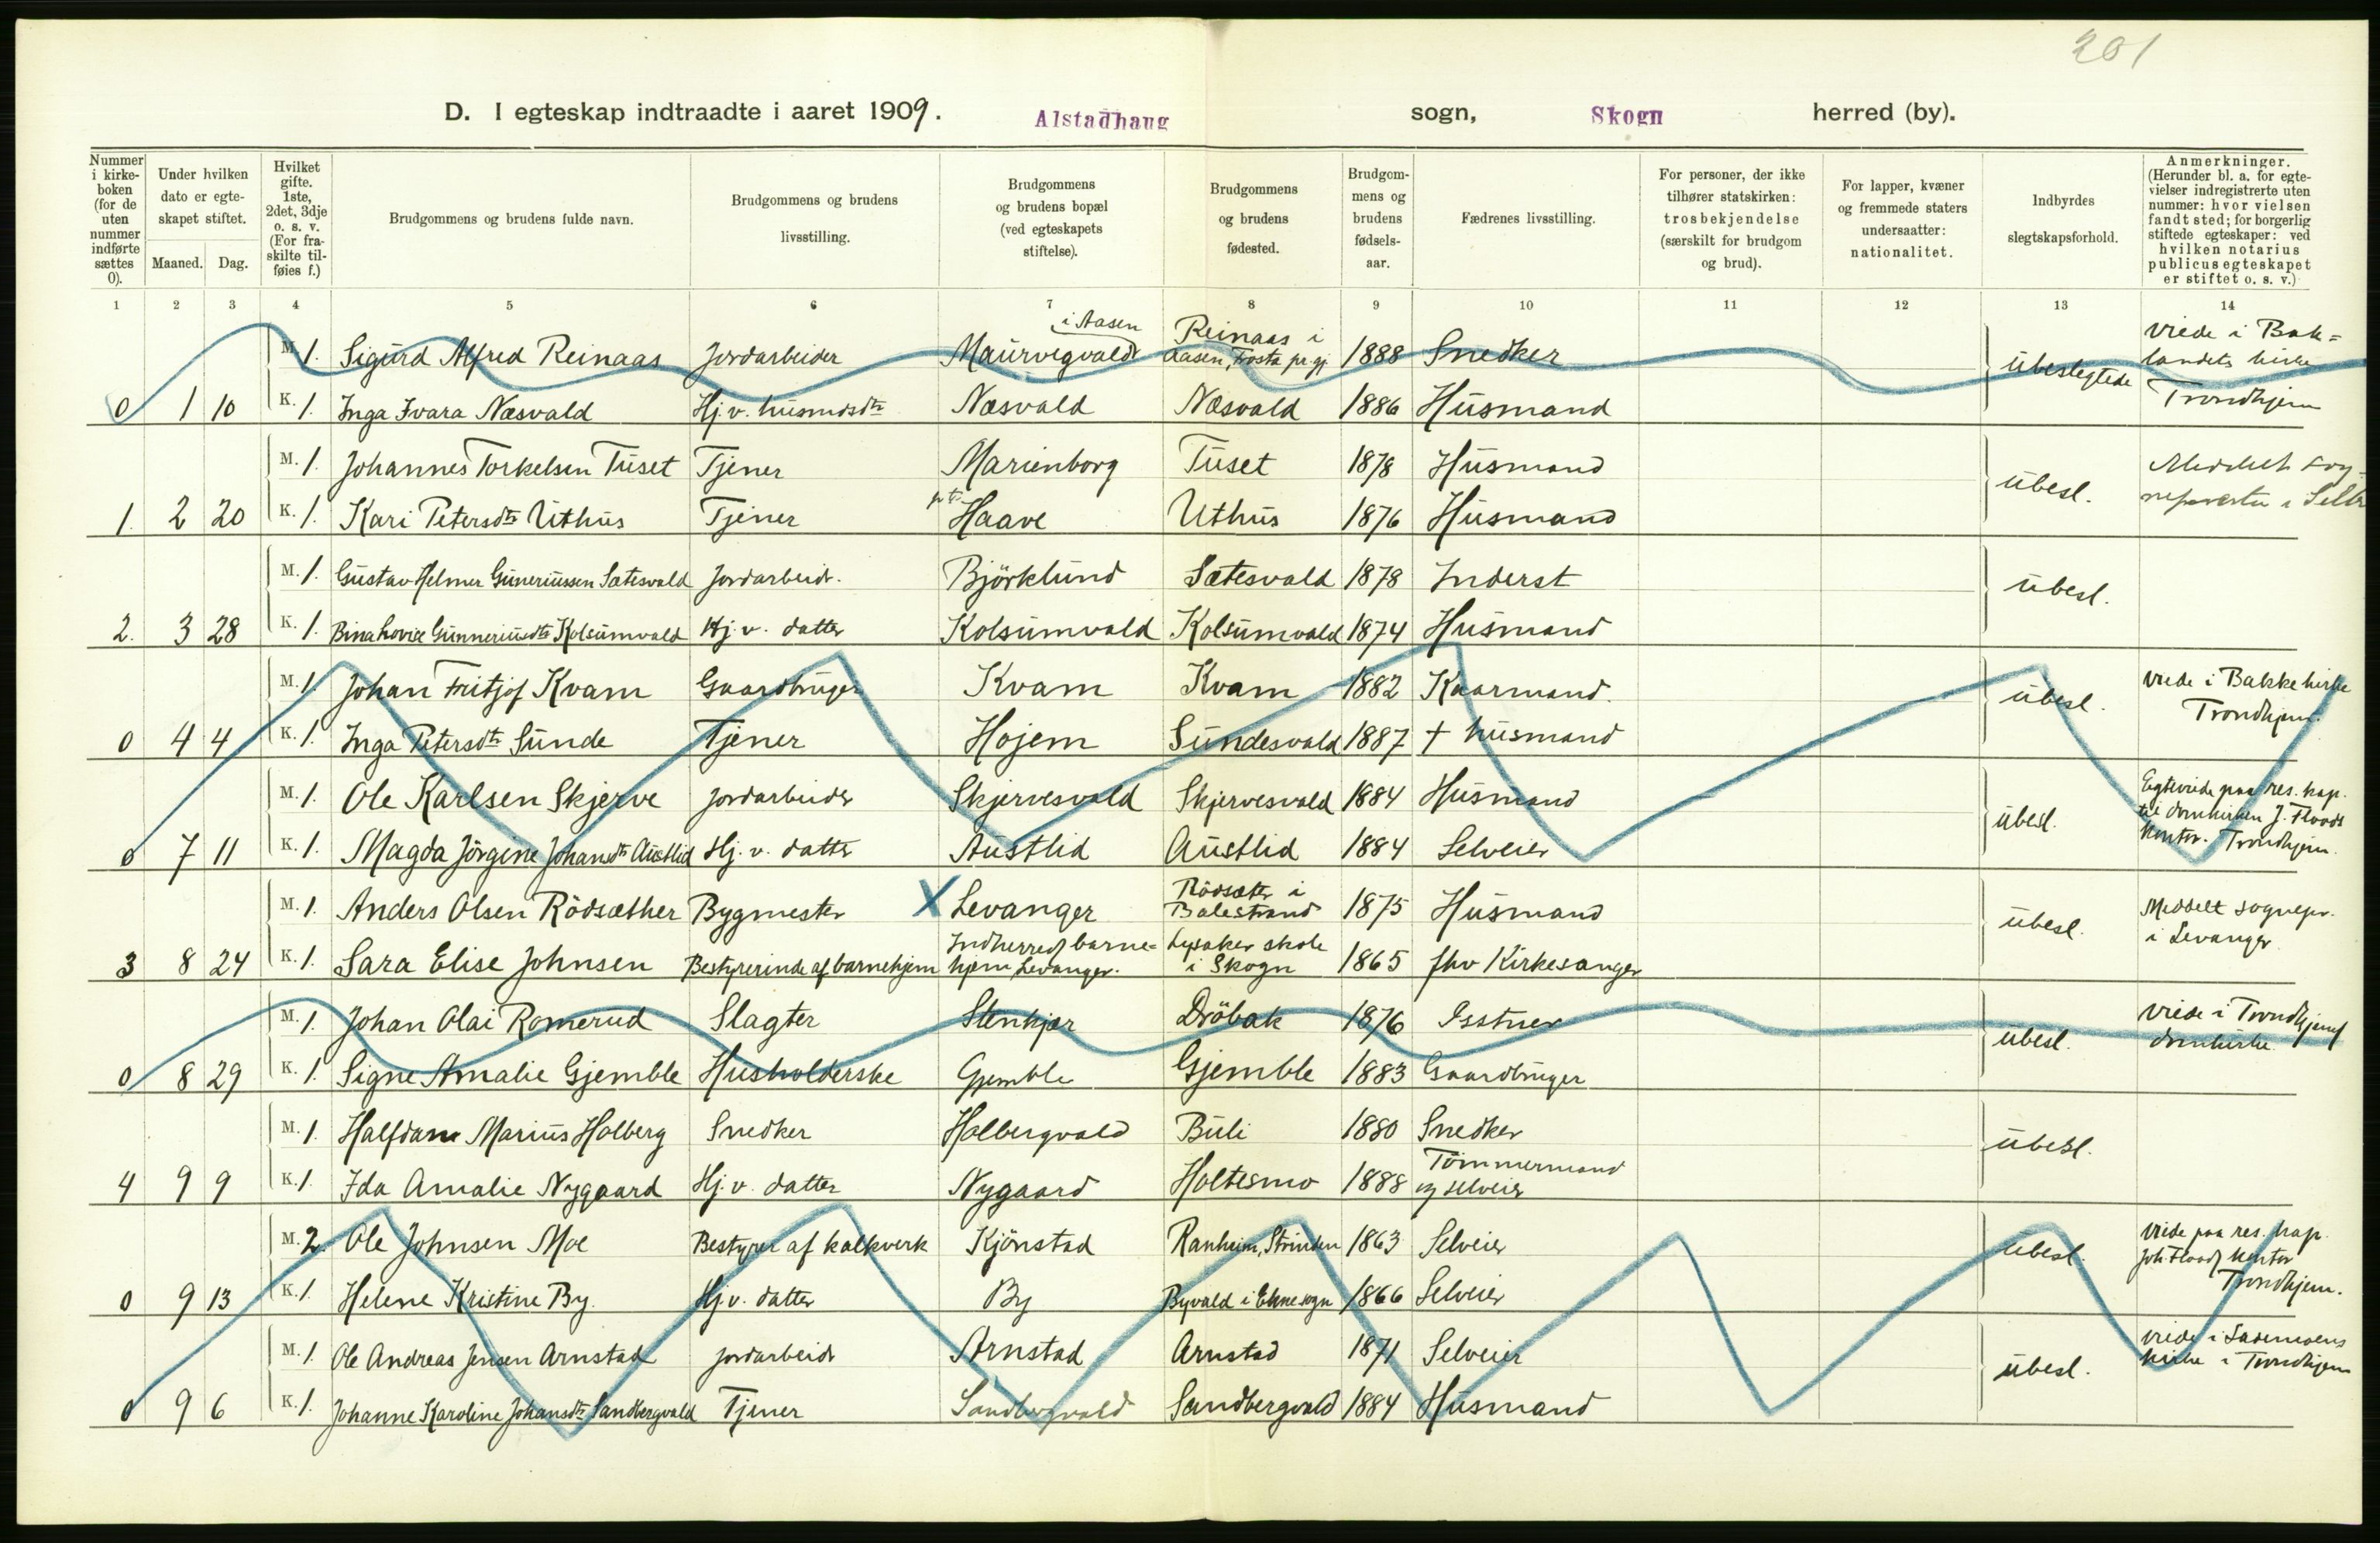 201
D. I egteskap indtraadte i aaret 1909. Alstadhaug sogn, Skogn herred (by).
Nummer i kirke-boken (for de uten nummer indførte sættes 0).
Under hvilken dato er egte-skapet stiftet.
Maaned. Dag.
Hvilket gifte. 1ste, 2det, 3dje o. s. v. (For fra-skilte til-føies f.)
Brudgommens og brudens fulde navn.
Brudgommens og brudens livsstilling.
Brudgommens og brudens bopæl (ved egteskapets stiftelse).
Brudgommens og brudens fødested.
Brudgom-mens og brudens fødsels-aar.
Fædrenes livsstilling.
For personer, der ikke tilhører statskirken: trosbekjendelse (særskilt for brudgom og brud).
For lapper, kvæner og fremmede staters undersaatter: nationalitet.
Indbyrdes slegtskapsforhold.
Anmerkninger. (Herunder bl. a. for egte-vielser indregistrerte uten nummer: hvor vielsen fandt sted; for borgerlig stiftede egteskaper: ved hvilken notarius publicus egteskapet er stiftet o. s. v.)
1 2 3 4 5 6 7 8 9 10 11 12 13 14
M. 1. Sigurd Alfred Reinaas Jordarbeider Maurvegvald i Aasen Reinaas i Aasen, Frosta pr.gj 1888 Snedker ubeslegtede viede i Bak=
landets kirke
0 1 10 K. 1. Inga Ivara Næsvald Hj. v. husmdsdtr Næsvald Næsvald 1886 Husmand Trondhjem
M. 1. Johannes Torkelsen Tuset Tjener Marienborg Tuset 1878 Husmand ubesl. Meddelt sog-
1. 2 20 K. 1. Kari Petersdtr Uthus Tjener Haave Uthus 1876 Husmand nepresten i Selbu
M. 1. Gustav Helmer Guneriussen Sætesvald Jordarbeidr. Björklund Sætesvald 1878 Inderst ubesl.
2. 3 28 K. 1. Bina Lovise Gunneriusdtr Kolsumvald Hj. v. datter Kolsumvald Kolsumvald 1874 Husmand
M. 1. Johan Fritjof Kvam Gaardbruger Kvam Kvam 1882 Kaarmand. ubesl. viede i Bakke kirke
0 4 4 K. 1. Inga Petersdtr Sunde Tjener Hojem Sundesvald 1887 † husmand Trondhjem.
M. 1. Ole Karlsen Skjerve Jordarbeider Skjervesvald Skjervesvald 1884 Husmand ubesl. Egteviede paa res. kap.
til domkirken J. Floods
0 7 11 K. 1. Magda Jörgine Johansdtr Austlid Hj. v. datter Austlid Austlid 1884 Selveier kontor. Trondhjem.
M. 1. Anders Olsen Rödsæther Bygmester X Levanger Rödsæter i Balestrand 1875 Husmand ubesl. Meddelt sognepr.
i Levanger
3 8 24 K. 1. Sara Elise Johnsen Bestyrerinde af barnehjem Indherreds barne=hjem Levanger. Lysaker skole i Skogn 1865 fhv Kirkesanger
M. 1. Johan Olai Romerud Slagter Stenkjær Dröbak 1876 ubesl. viede i Trondhjems
domkirke.
0 8 29 K. 1. Signe Amalie Gjemble Husholderske Gjemble Gjemble 1883 Gaardbruger
M. 1. Halfdan Marius Holberg Snedker Holbergvald Buli 1880 Snedker ubesl.
4 9 9 K. 1. Ida Amalie Nygaard Hj. v. datter Nygaard Holtesmo 1888 Tömmermand og selveier
M. 2. Ole Johnsen Moe Bestyrer af kalkverk Kjönstad Ranheim, Strinden 1863 Selveier ubesl. viede paa res. kap.
Joh. Floods kontor
0 9 13 K. 1. Helene Kristine By Hj. v. datter By Byvald i Ekne sogn 1866 Selveier Trondhjem.
M. 1. Ole Andreas Jensen Arnstad Jordarbeidr Arnstad Arnstad 1871 Selveier ubesl. viede i Lademoens
kirke i Trondhjem
0 9 6 K. 1. Johanne Karoline Johansdtr Sandbergvald Tjener Sandbergvald Sandbergvald 1884 Husmand